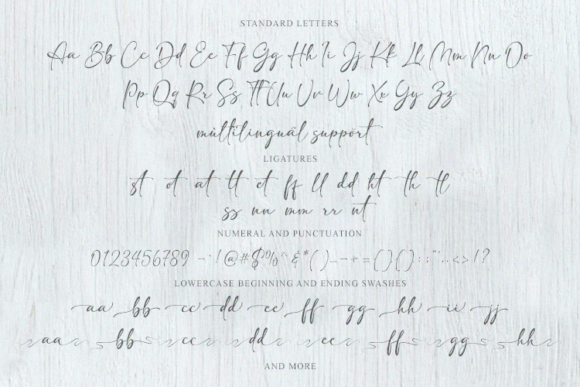 STANDARD LETTERS
Aa Bb Cc Dd Ee Ff Gg Hh Ii Jj Kk Ll Mm Nn Oo
Pp Qq Rr Ss Tt Uu Vv Ww Xx Yy Zz
múltilinguäl support
LIGATURES
st ot at tt et ff ll dd ht th tl
ss nn mm rr nt
NUMERAL AND PUNCTUATION
0123456789
LOWERCASE BEGINNING AND ENDING SWASHES
aa bb cc dd ee ff gg hh ii jj
aa bb cc dd ee ff gg hh
AND MORE